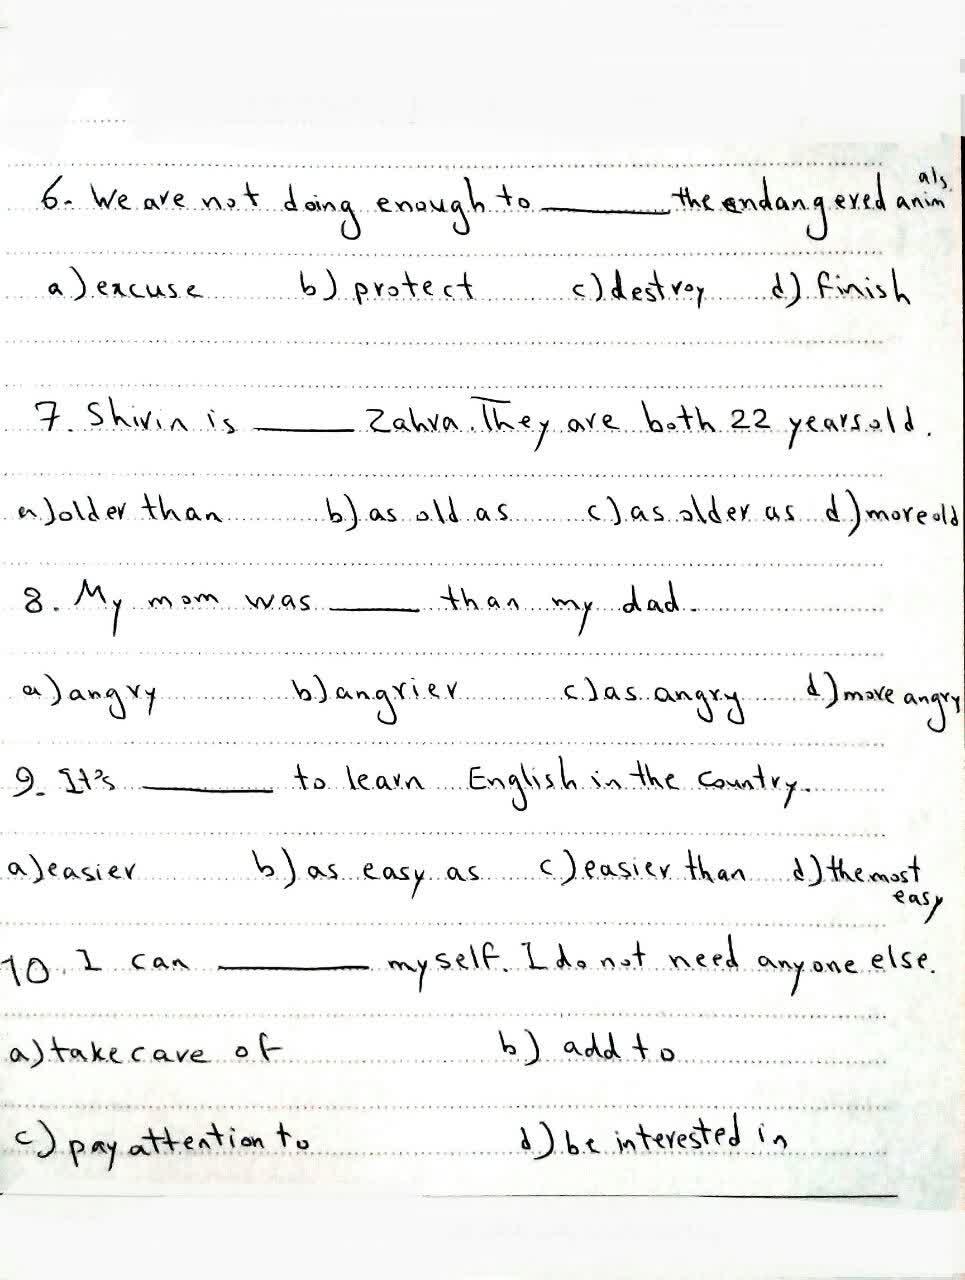 6. We are not doing enough to ______ the endangered animals.
a) excuse b) protect c) destroy d) finish
7. Shirin is ______ Zahra. They are both 22 years old.
a) older than b) as old as c) as older as d) more old
8. My mom was ______ than my dad.
a) angry b) angrier c) as angry d) more angry
9. It's ______ to learn English in the country.
a) easier b) as easy as c) easier than d) the most easy
10. I can ______ myself. I do not need anyone else.
a) take care of b) add to
c) pay attention to d) be interested in